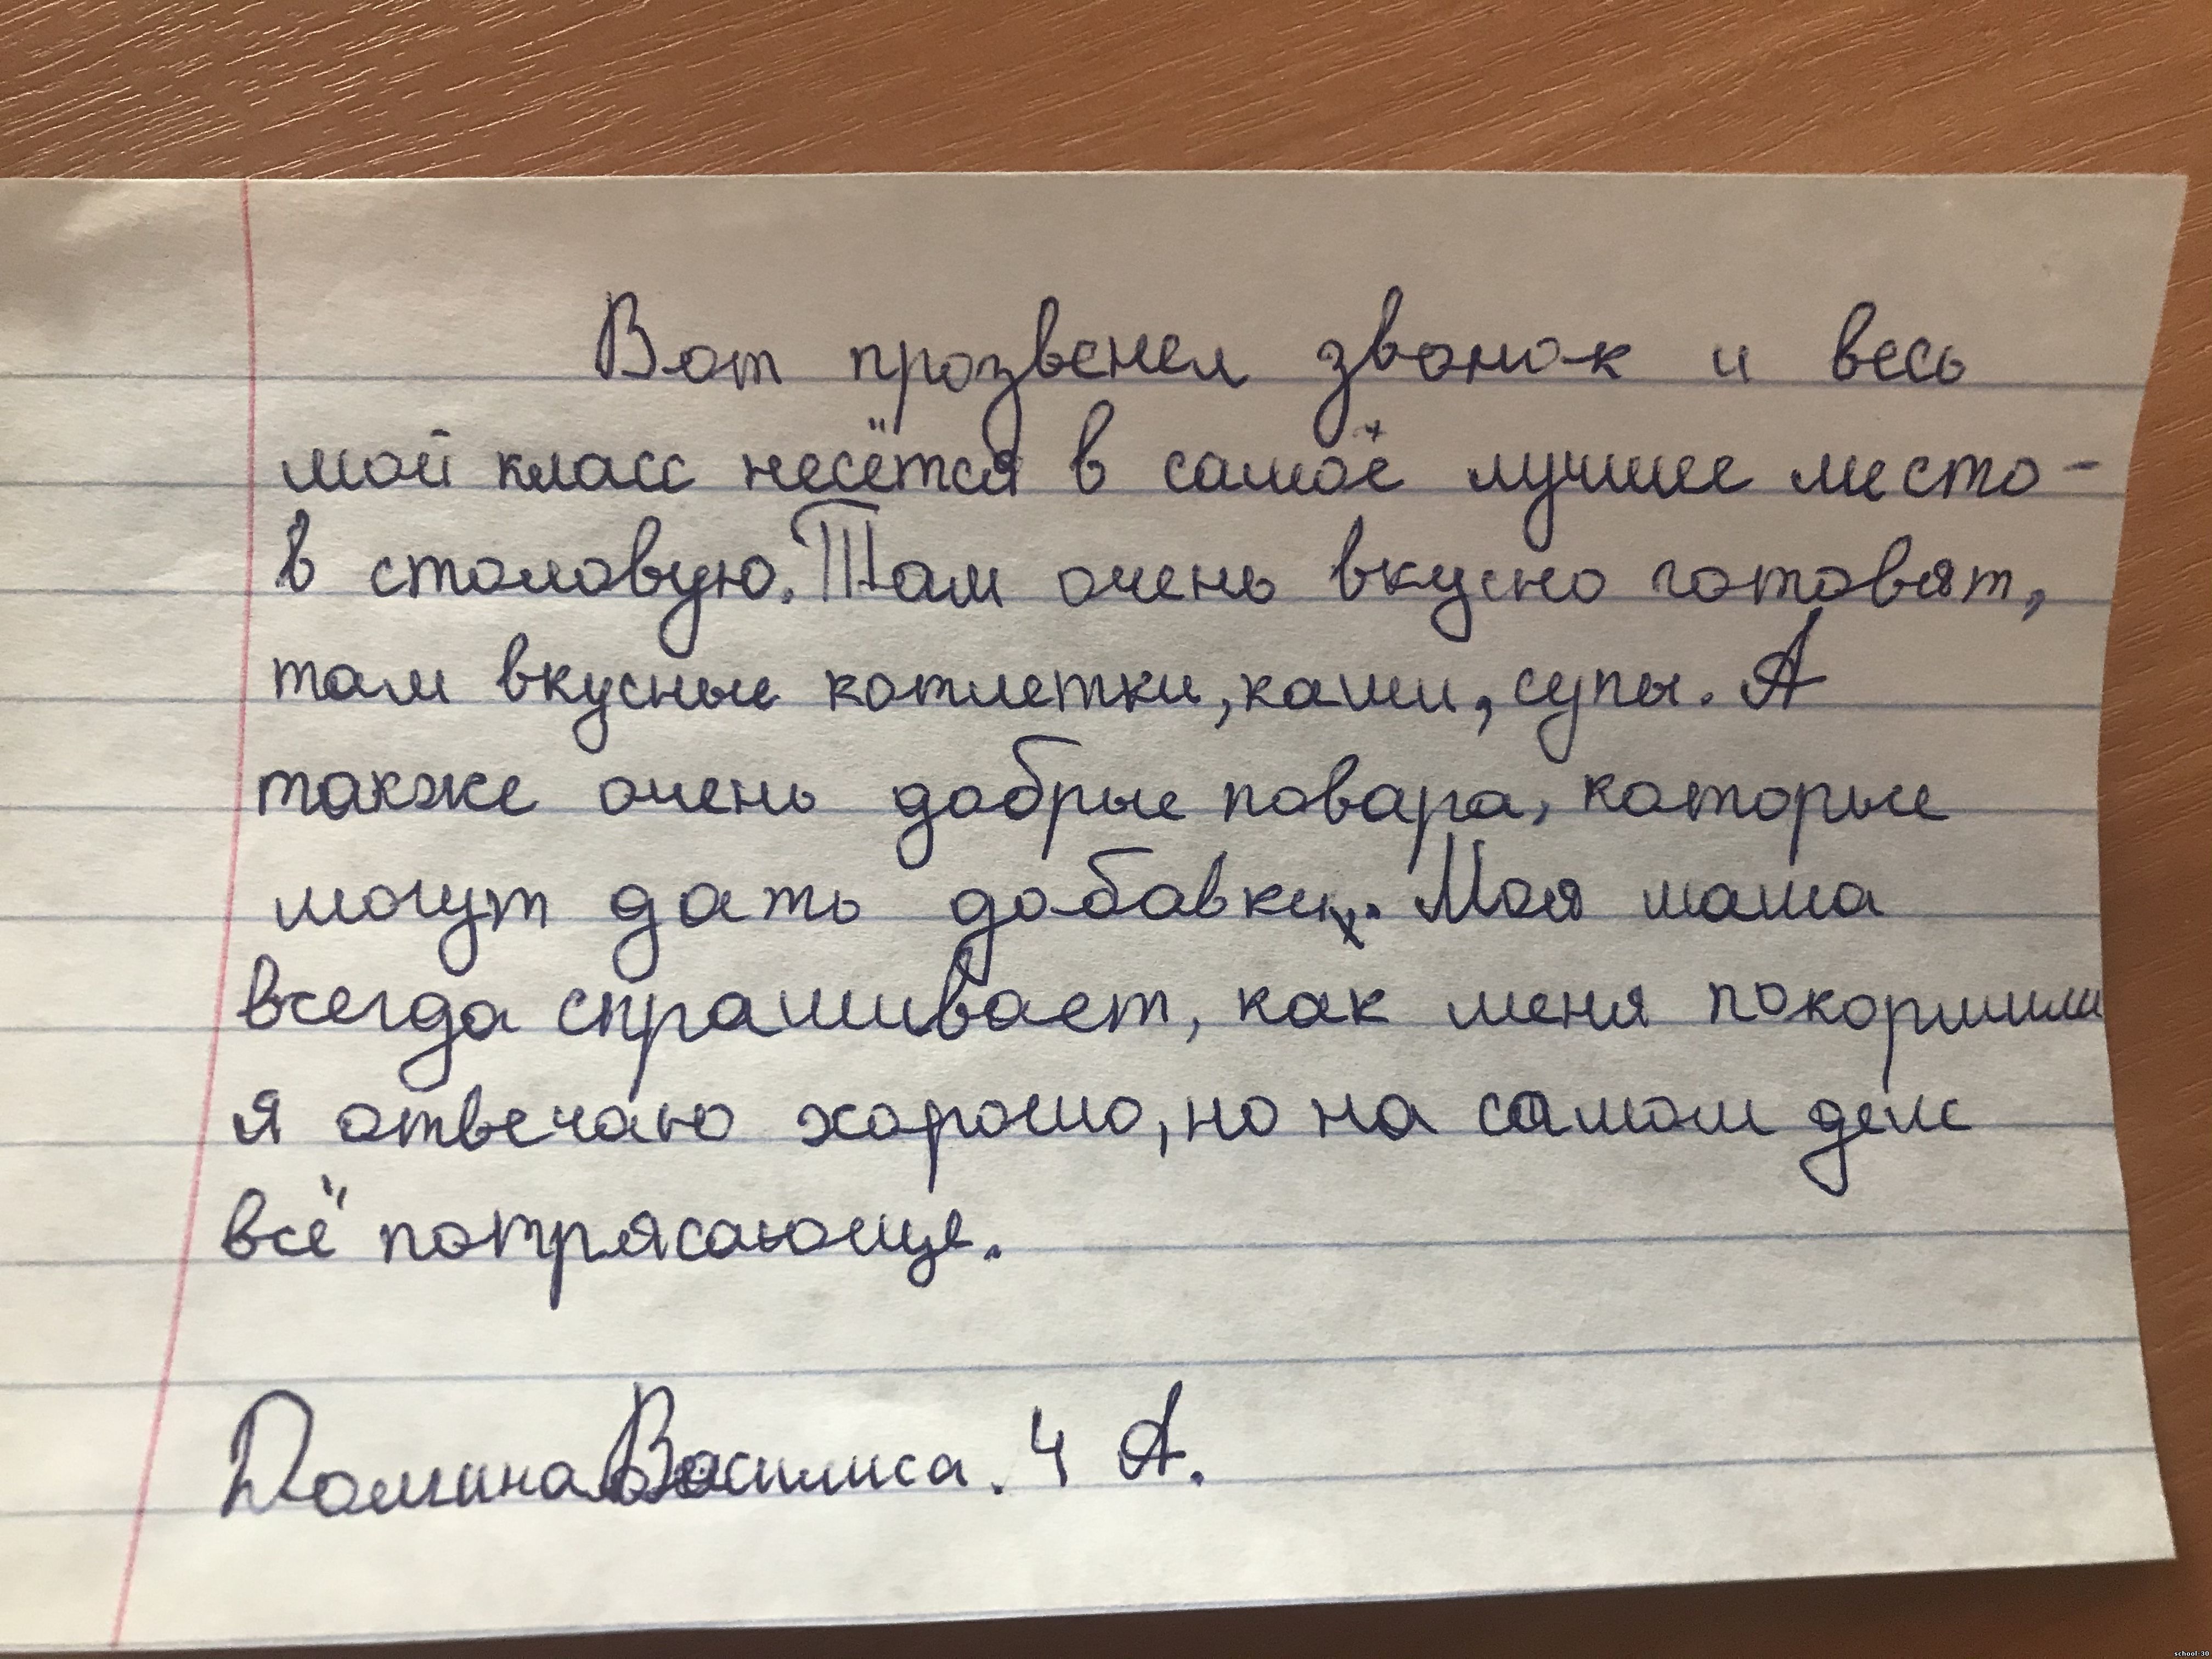 Вот прозвенел звонок и весь
мой класс несётся в самоё лучшее место -
в столовую. Там очень вкусно готовят,
там вкусные котлетки, каши, супы. А
также очень добрые повара, которые
могут дать добавки. Моя мама
всегда спрашивает, как меня покормили
я отвечаю хорошо, но на самом деле
всё потрясающе.
Домина Василиса. 4 А.
school-30